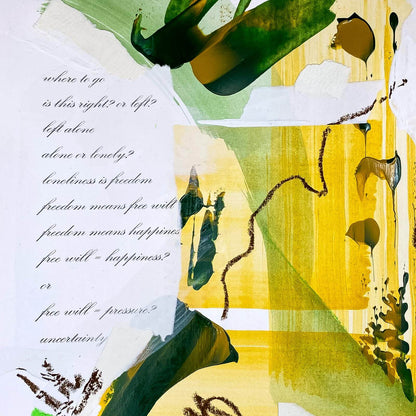 where to go
is this right? or left?
left alone
alone or lonely?
loneliness is freedom
freedom means free will
freedom means happines
free will = happiness?
or
free will = pressure?
uncertainty